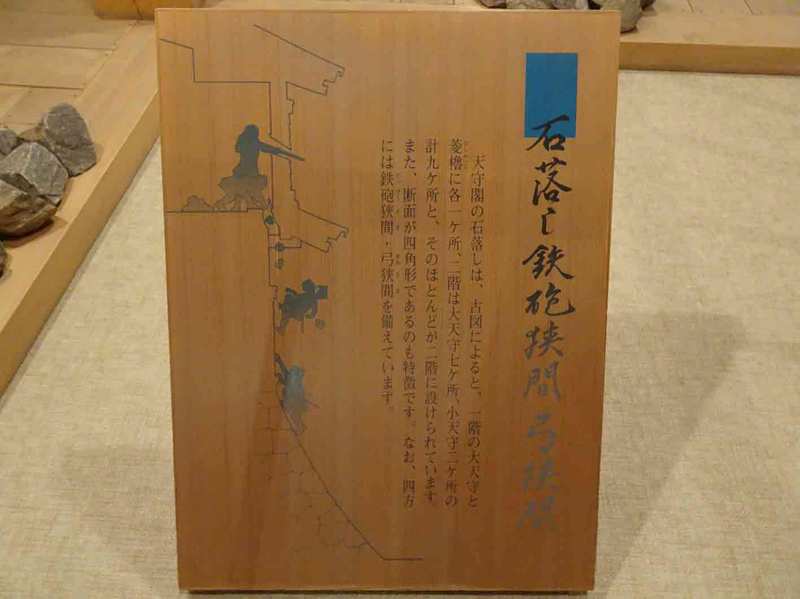 石落し鉄砲狭間 弓狭間
天守閣の石落しは、古図によると、一階の大天守と
菱櫓に各一ケ所、二階は大天守七ケ所、小天守二ケ所の
計九ケ所と、そのほとんどが二階に設けられています。
また、断面が四角形であるのも特徴です。なお、四方
には鉄砲狭間・弓狭間を備えています。